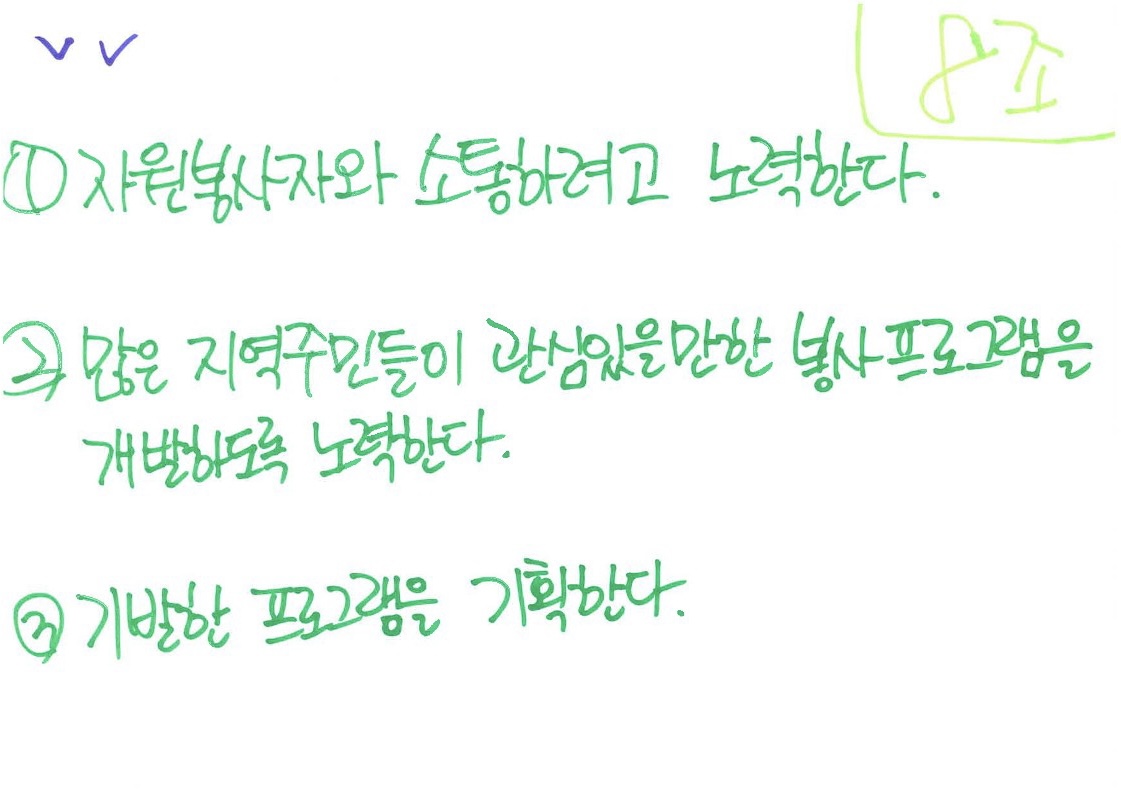 8조
① 자원봉사자와 소통하려고 노력한다.
② 많은 지역주민들이 관심있을만한 봉사프로그램을
개발하도록 노력한다.
③ 기발한 프로그램을 기획한다.